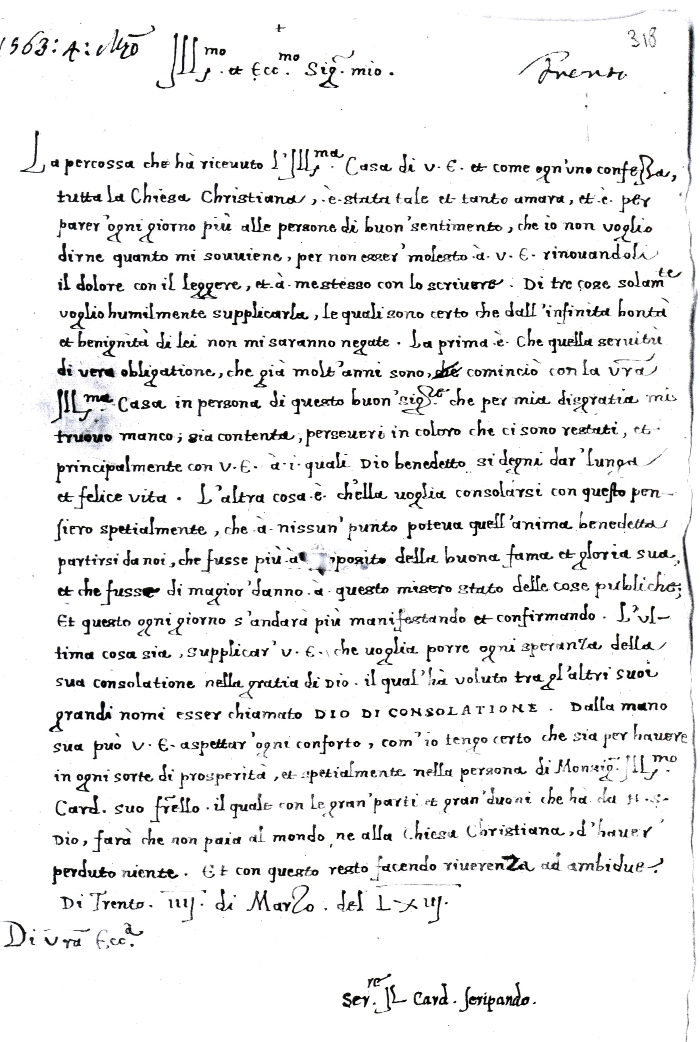 1563: 4: Mzo
318
+
Ill.mo et Ecc.mo Sig. mio.
Trento
La percossa che hà riceuuto l'Ill.ma Casa di V. E. et come ogn'uno confessa,
tutta la Chiesa Christiana, è stata tale et tanto amara, et è per
parer'ogni giorno più alle persone di buon'sentimento, che io non voglio
dirne quanto mi souuiene, per non esser'molesto à V. E. rinouandoli
il dolore con il leggere, et à mestesso con lo scriuere. Di tre cose solam.te
voglio humilmente supplicarla, le quali sono certo che dall'infinita bontà
et benignità di lei non mi saranno negate. La prima è. Che quella seruitù
di vera obligatione, che già molt'anni sono, cominciò con la vra
Ill.ma Casa in persona di questo buon'sig.re che per mia disgratia mi
truouo manco; sia contenta, perseueri in coloro che ci sono restati, et
principalmente con V. E. à i quali Dio benedetto si degni dar'lunga
et felice vita. L'altra cosa è ch'ella uoglia consolarsi con questo pen-
siero spetialmente, che à nissun'punto poteua quell'anima benedetta
partirsi da noi, che fusse più à posito della buona fama et gloria sua,
et che fusse di magior'danno à questo misero stato delle cose publiche;
Et questo ogni giorno s'andarà più manifestando et confirmando. L'ul-
tima cosa sia, supplicar'V. E. che uoglia porre ogni speranza della
sua consolatione nella gratia di Dio. il qual'hà voluto tra gl'altri suoi
grandi nomi esser chiamato DIO DI CONSOLATIONE. Dalla mano
sua può V. E. aspettar'ogni conforto, com'io tengo certo che sia per hauere
in ogni sorte di prosperità, et spetialmente nella persona di Monsig. Ill.mo
Card. suo frello. il quale con le gran'parti et gran'duoni che ha da N. S.
Dio, farà che non paia al mondo, ne alla Chiesa Christiana, d'hauer
perduto niente. Et con questo resto facendo riuerenza ad ambidue.
Di Trento. iiij. di Marzo. del Lxiij.
Di Vra Ecc.a
Ser.re Il Card. Seripando.